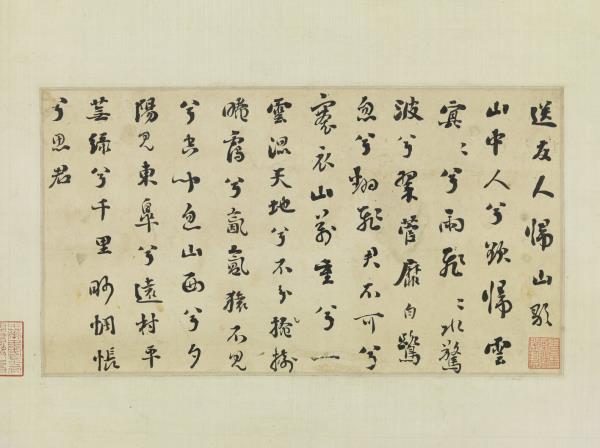 送友人歸山歌
山中人兮欲歸雲
冥〻兮雨飛〻水驚
波兮翠菅靡白鷺
忽兮翻飛君不可兮
褰衣山萬重兮一
雲混天地兮不分掩樹
晻靄兮氤氳猿不見
兮空聞忽山西兮夕
陽見東皋兮遠村平
蕪綠兮千里眇惆悵
兮思君